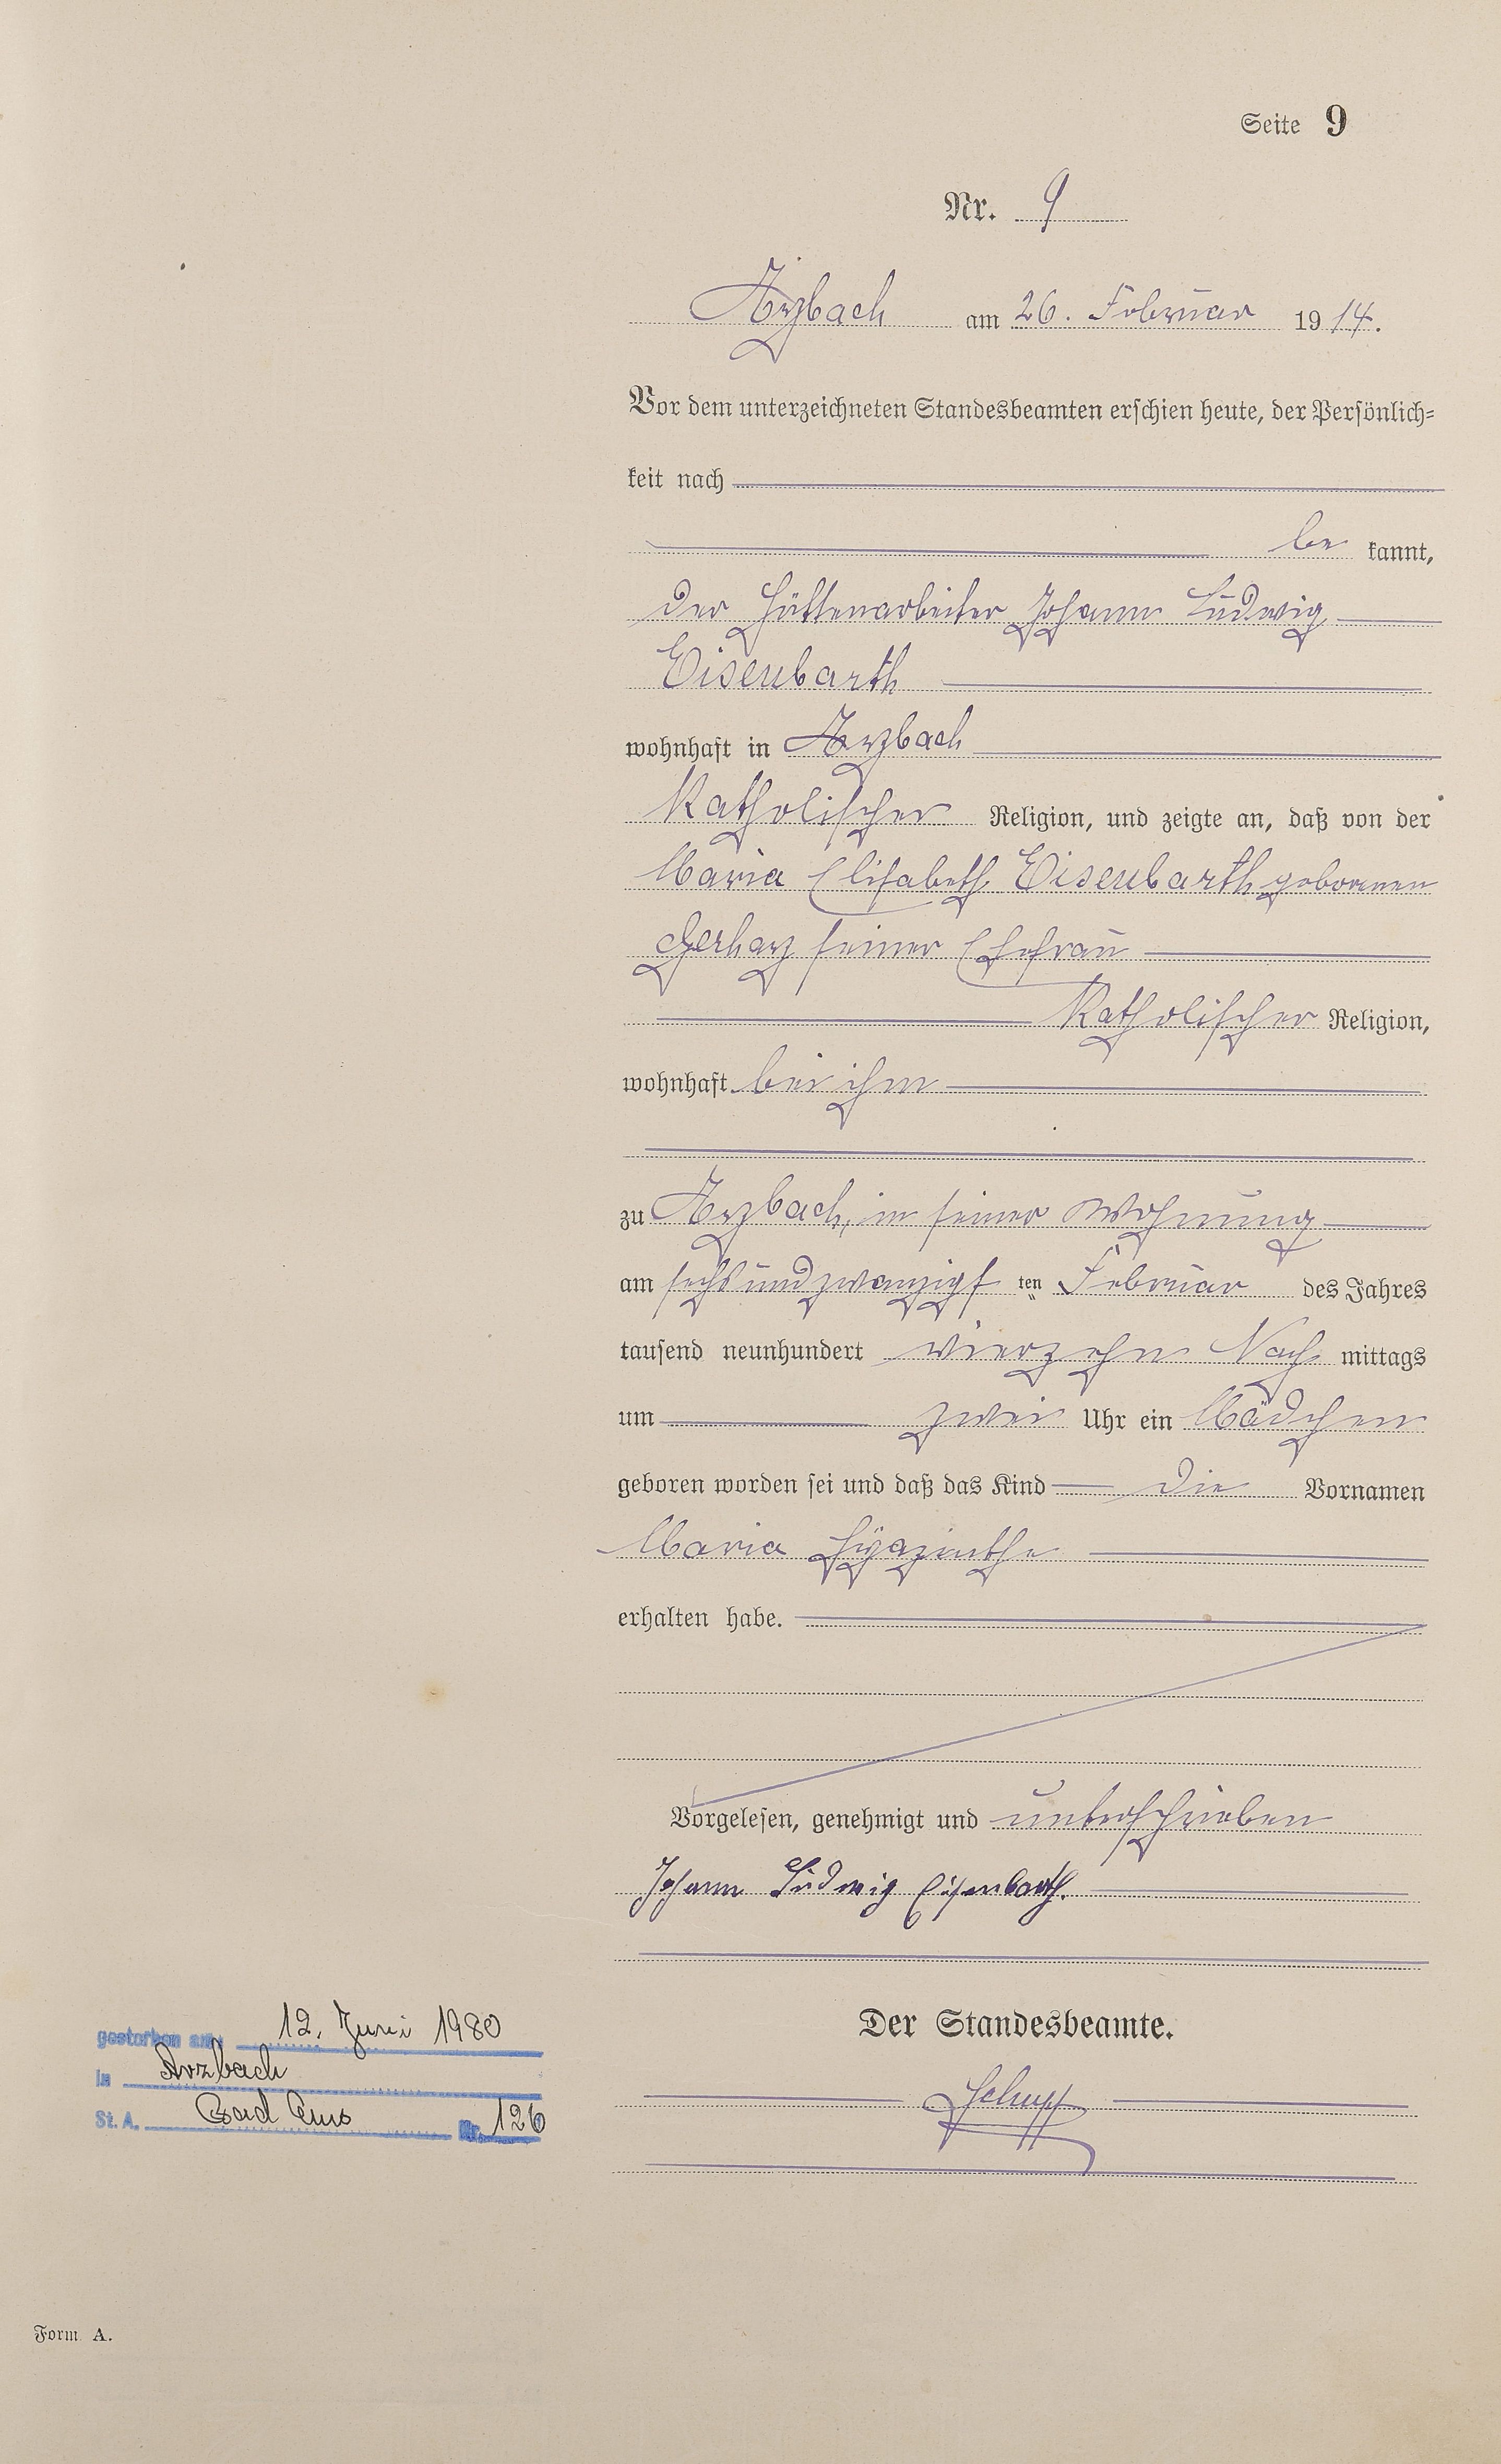 Seite 9
Nr. 9
Arzbach am 26. Februar 1914.
Vor dem unterzeichneten Standesbeamten erschien heute, der Persönlich-
keit nach
be kannt,
der Hüttenarbeiter Johann Ludwig
Eisenbarth
wohnhaft in Arzbach
Katholischer Religion, und zeigte an, daß von der
Maria Elisabeth Eisenbarth geborenen
Gerharz seiner Ehefrau
Katholischer Religion,
wohnhaft bei ihm
zu Arzbach, in seiner Wohnung
am sechsundzwanzigs ten Februar des Jahres
tausend neunhundert vierzehn Nach mittags
um zwei Uhr ein Mädchen
geboren worden sei und daß das Kind die Vornamen
Maria Hyazinthe
erhalten habe.
Vorgelesen, genehmigt und unterschrieben
Johann Ludwig Eisenbarth.
Der Standesbeamte.
Schupp
gestorben am 12. Juni 1980
in Arzbach
St. A. Bad Ems Nr. 126
Form A.